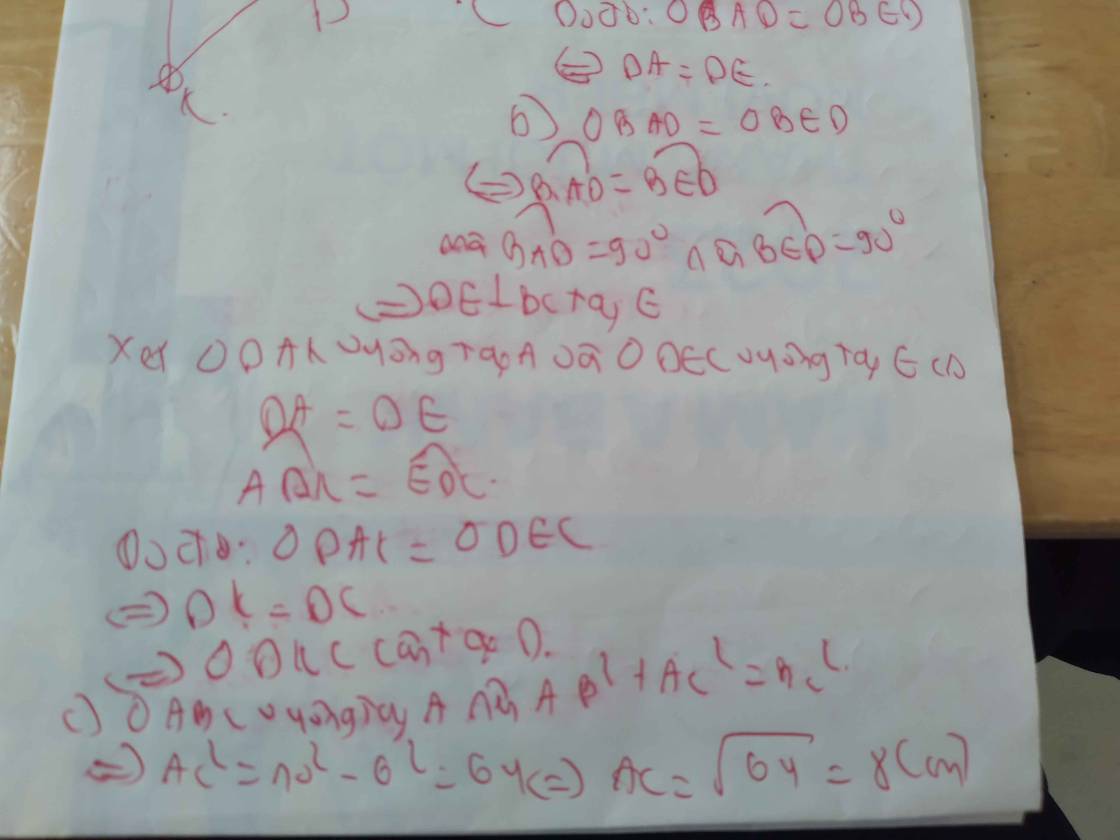 D
C
K.
Do đó: Δ BAD = Δ BED
⇔ DA = DE.
b) Δ BAD = Δ BED
⇔ BAD = BED
mà BAD = 90° nên BED = 90°
⇒ DE ⊥ BC tại E
Xét Δ DAK vuông tại A và Δ DEC vuông tại E có
DA = DE
ADK = EDC.
Do đó: Δ DAK = Δ DEC
⇒ DK = DC
⇒ Δ DKC cân tại D.
c) Δ ABC vuông tại A nên AB² + AC² = BC².
⇒ AC² = 10² - 6² = 64 ⇔ AC = √64 = 8(cm)